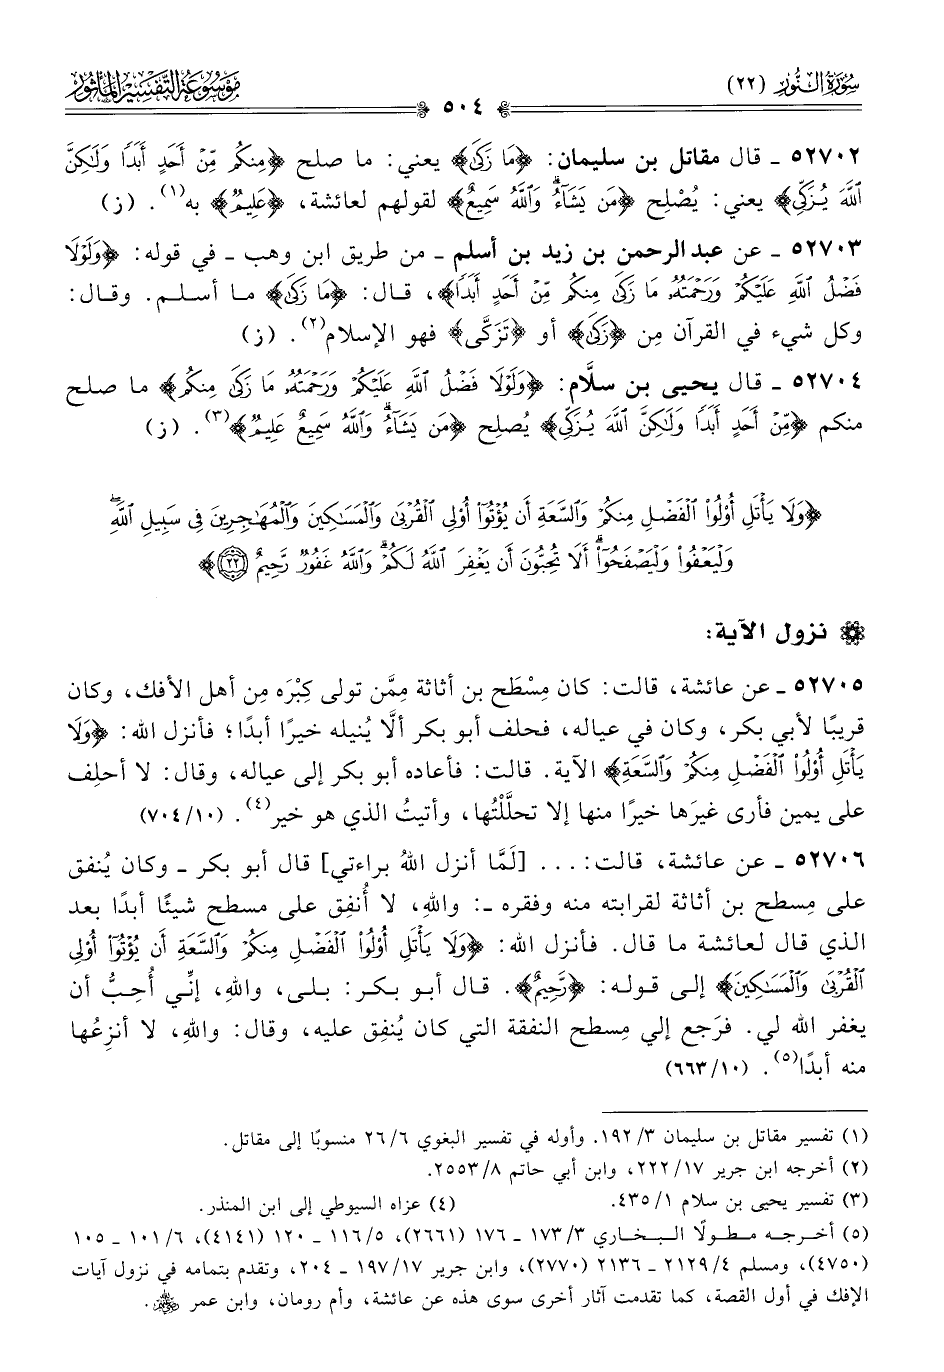 سُورَةُ النُّور (٢٢)
٥٠٤
مَوْسُوعَةُ التَّفْسِيرِ المَأْثُور
٥٢٧٠٢ ـ قال مقاتل بن سليمان: ﴿مَا زَكَىٰ﴾ يعني: ما صلح ﴿مِنكُم مِّنْ أَحَدٍ أَبَدًا وَلَٰكِنَّ
ٱللَّهَ يُزَكِّي﴾ يعني: يُصْلِح ﴿مَن يَشَآءُ ۗ وَٱللَّهُ سَمِيعٌ﴾ لقولهم لعائشة، ﴿عَلِيمٌ﴾ به(١). (ز)
٥٢٧٠٣ ـ عن عبد الرحمن بن زيد بن أسلم ـ من طريق ابن وهب ـ في قوله: ﴿وَلَوْلَا
فَضْلُ ٱللَّهِ عَلَيْكُمْ وَرَحْمَتُهُۥ مَا زَكَىٰ مِنكُم مِّنْ أَحَدٍ أَبَدًا﴾، قال: ﴿مَا زَكَىٰ﴾ ما أسلم. وقال:
وكل شيء في القرآن مِن ﴿زَكَىٰ﴾ أو ﴿تَزَكَّى﴾ فهو الإسلام(٢). (ز)
٥٢٧٠٤ ـ قال يحيى بن سلَّام: ﴿وَلَوْلَا فَضْلُ ٱللَّهِ عَلَيْكُمْ وَرَحْمَتُهُۥ مَا زَكَىٰ مِنكُم﴾ ما صلح
منكم ﴿مِّنْ أَحَدٍ أَبَدًا وَلَٰكِنَّ ٱللَّهَ يُزَكِّي﴾ يُصلِح ﴿مَن يَشَآءُ ۗ وَٱللَّهُ سَمِيعٌ عَلِيمٌ﴾(٣). (ز)
﴿وَلَا يَأْتَلِ أُوْلُواْ ٱلْفَضْلِ مِنكُمْ وَٱلسَّعَةِ أَن يُؤْتُوٓاْ أُوْلِي ٱلْقُرْبَىٰ وَٱلْمَسَٰكِينَ وَٱلْمُهَٰجِرِينَ فِي سَبِيلِ ٱللَّهِ ۖ
وَلْيَعْفُواْ وَلْيَصْفَحُوٓاْ ۗ أَلَا تُحِبُّونَ أَن يَغْفِرَ ٱللَّهُ لَكُمْ ۗ وَٱللَّهُ غَفُورٌ رَّحِيمٌ ٢٢﴾
نزول الآية:
٥٢٧٠٥ ـ عن عائشة، قالت: كان مِسْطَح بن أثاثة مِمَّن تولى كِبْرَه مِن أهل الأفك، وكان
قريبًا لأبي بكر، وكان في عياله، فحلف أبو بكر ألَّا يُنيله خيرًا أبدًا؛ فأنزل الله: ﴿وَلَا
يَأْتَلِ أُوْلُواْ ٱلْفَضْلِ مِنكُمْ وَٱلسَّعَةِ﴾ الآية. قالت: فأعاده أبو بكر إلى عياله، وقال: لا أحلِف
على يمين فأرى غيرَها خيرًا منها إلا تحلَّلْتُها، وأتيتُ الذي هو خير(٤). (٧٠٤/١٠)
٥٢٧٠٦ ـ عن عائشة، قالت: ... [لَمَّا أنزل اللهُ براءتي] قال أبو بكر ـ وكان يُنفق
على مِسطح بن أثاثة لقرابته منه وفقره ـ: واللهِ، لا أُنفِق على مسطح شيئًا أبدًا بعد
الذي قال لعائشة ما قال. فأنزل الله: ﴿وَلَا يَأْتَلِ أُوْلُواْ ٱلْفَضْلِ مِنكُمْ وَٱلسَّعَةِ أَن يُؤْتُوٓاْ أُوْلِي
ٱلْقُرْبَىٰ وَٱلْمَسَٰكِينَ﴾ إلى قوله: ﴿رَّحِيمٌ﴾. قال أبو بكر: بلى، واللهِ، إنِّي أُحِبُّ أن
يغفر الله لي. فرَجع إلي مِسطح النفقة التي كان يُنفِق عليه، وقال: واللهِ، لا أنزِعُها
منه أبدًا(٥). (٦٦٣/١٠)
(١) تفسير مقاتل بن سليمان ٣/ ١٩٢. وأوله في تفسير البغوي ٦/ ٢٦ منسوبًا إلى مقاتل.
(٢) أخرجه ابن جرير ١٧/ ٢٢٢، وابن أبي حاتم ٨/ ٢٥٥٣.
(٣) تفسير يحيى بن سلام ١/ ٤٣٥. (٤) عزاه السيوطي إلى ابن المنذر.
(٥) أخرجه مطولًا البخاري ٣/ ١٧٣ ـ ١٧٦ (٢٦٦١)، ٥/ ١١٦ ـ ١٢٠ (٤١٤١)، ٦/ ١٠١ ـ ١٠٥
(٤٧٥٠)، ومسلم ٤/ ٢١٢٩ ـ ٢١٣٦ (٢٧٧٠)، وابن جرير ١٧/ ١٩٧ ـ ٢٠٤، وتقدم بتمامه في نزول آيات
الإفك في أول القصة، كما تقدمت آثار أخرى سوى هذه عن عائشة، وأم رومان، وابن عمر .